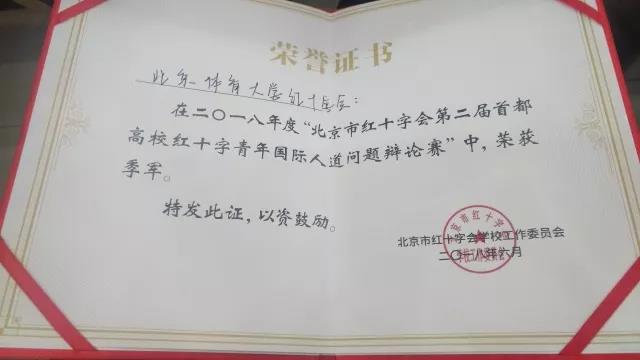 荣誉证书
北京体育大学红十字会：
在二〇一八年度“北京市红十字会第二届首都
高校红十字青年国际人道问题辩论赛”中，荣获
季军。
特发此证，以资鼓励。
北京市红十字会学校工作委员会
二〇一八年六月